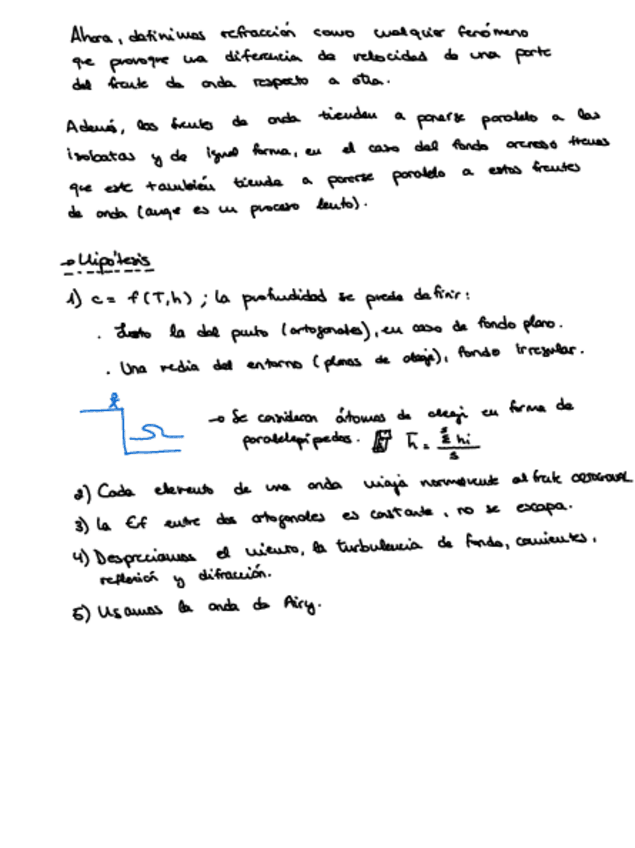 Ahora, definimos refracción como cualquier fenómeno
que provoque una diferencia de velocidad de una parte
del frente de onda respecto a otra.
Además, los frentes de onda tienden a ponerse paralelo a las
isobatas y de igual forma, en el caso del fondo arenoso
que este también tiende a ponerse paralelo a estos frentes
de onda (aunq es un proceso lento).
→ Hipótesis
1) c = f(T,h) ; la profundidad se puede definir:
. Justo la del punto (ortogonales), en caso de fondo plano.
. Una media del entorno (planos de oleaje), fondo irregular.
→ Se consideran átomos de oleaje en forma de
paralelepípedos. h̄ =
2) Cada elemento de una onda viaja normalmente al frente ORTOGONAL
3) La Ef entre dos ortogonales es constante, no se escapa.
4) Despreciamos el viento, la turbulencia de fondo, corrientes,
reflexión y difracción.
5) Usamos la onda de Airy.